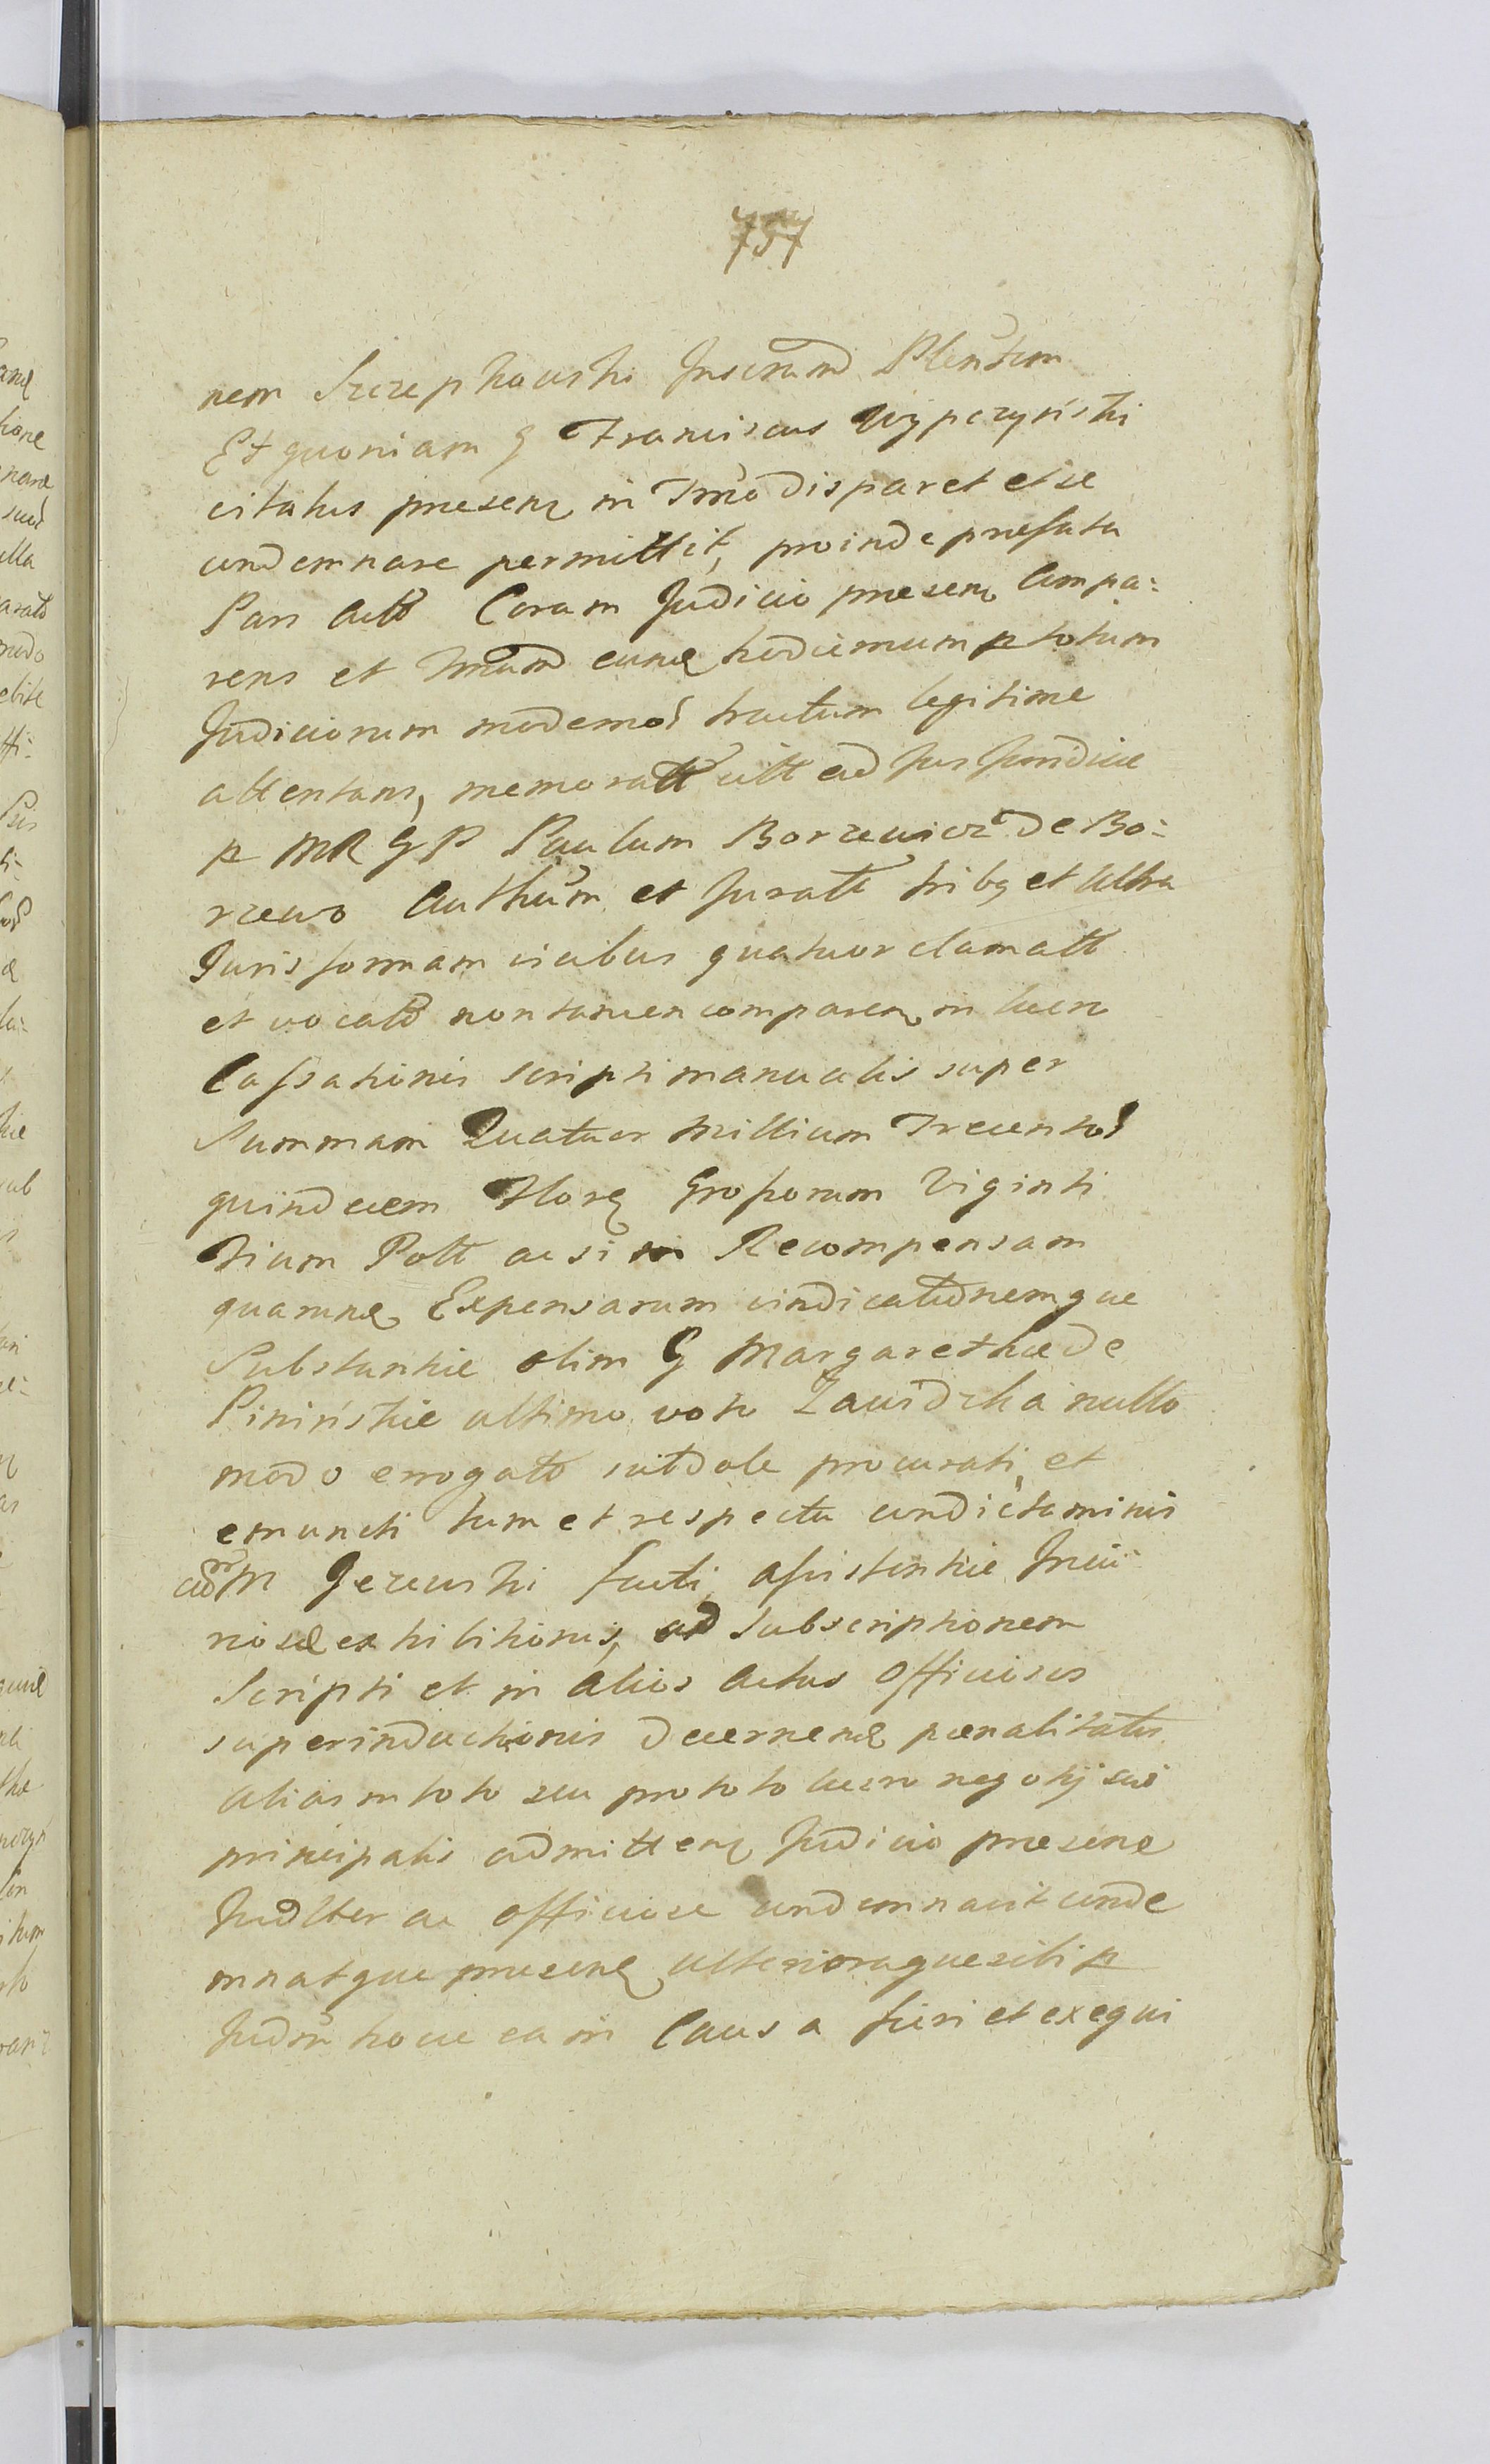 757
nem Szczephowski Plenitm
Et quoniam G Franciscus Wypczynski
citatus presenq in Tmo disparet et se
condemnare permittit, proinde præfata
Pars Act Coram Judicio præsenq Compa:
rens et Tmum eunq hodiernum p totum
Judiciorum modernor tractum legitime
attentans, memoratt citt ad Jus Juridice
p MR GP Paulum Borzewicz de Bo:
rzewo Authum et Juratt tribq et Ultra
Juris formam vicibus quatuor clamatt
et vocatt non tamen comparenq in lucro
Cassationis scripti manualis super
Summam Quatuor Millium Trecentor
quindecem Flore Grossorum Viginti
Trium Poll ac si in Recompensam
quarunq Expensarum vindicationemque
Substantiæ olim G Margarethæ de
Pininskie ultimo voto Zawidzka nullo
modo errogatt subdole procurati, et
emuncti tum et respectu condictaminis
cum M Jezewski facti assistentiæ Iniu
riosæ exhibitionis, ad subscriptionem
Scripti et in alios Actus Officiosos
superinductionis decernenq pœnalitatis
alias in toto seu pro toto lucro negotij sui
principalis admittenq Judicio præsenq
Judlter ac officiose condemnavit conde
mnatque præsenq ulterioraque sibi p
Judm hocce ea in Causa fieri et exequi